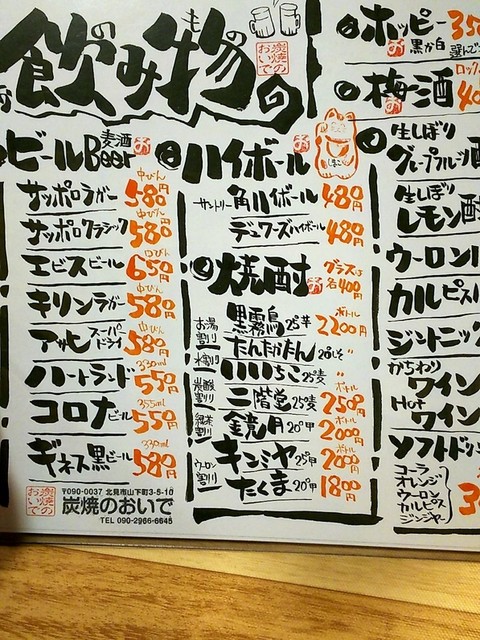 飲み物の
の
もの
炭焼の
おいで
ビール Beer 麦酒
サッポロラガー 中びん 580円
サッポロクラシック 中びん 580円
エビスビール 中びん 650円
キリンラガー 中びん 580円
アサヒスーパードライ 中びん 580円
ハートランド 330ml 550円
コロナビール 355ml 550円
ギネス黒ビール 330ml 580円
炭焼の
おいで
〒090-0037 北見市山下町3-5-10
炭焼のおいで
TEL 090-2966-6645
ハイボール
サントリー角ハイボール 480円
デュワーズハイボール 480円
焼酎 グラスは各400円
お湯割り
水割り
炭酸割り
緑茶割り
ウーロン割り
黒霧島 25°芋 ボトル 2200円
たんたかたん 20°しそ 〃
いいちこ 25°麦 〃
二階堂 25°麦 ボトル 2500円
鏡月 20°甲 ボトル 2000円
キンミヤ 25°甲 ボトル
たくま 20°甲 1800円
ホッピー 35
黒か白 選んで
梅酒 ロック 40
生しぼり
グレープフルーツ
生しぼり
レモン
ウーロン
カルピス
ジントニッ
かちわり
ワイン
Hot
ワイン
ソフトド
コーラ
オレンジ
ウーロン
カルピス
ジンジャー
3